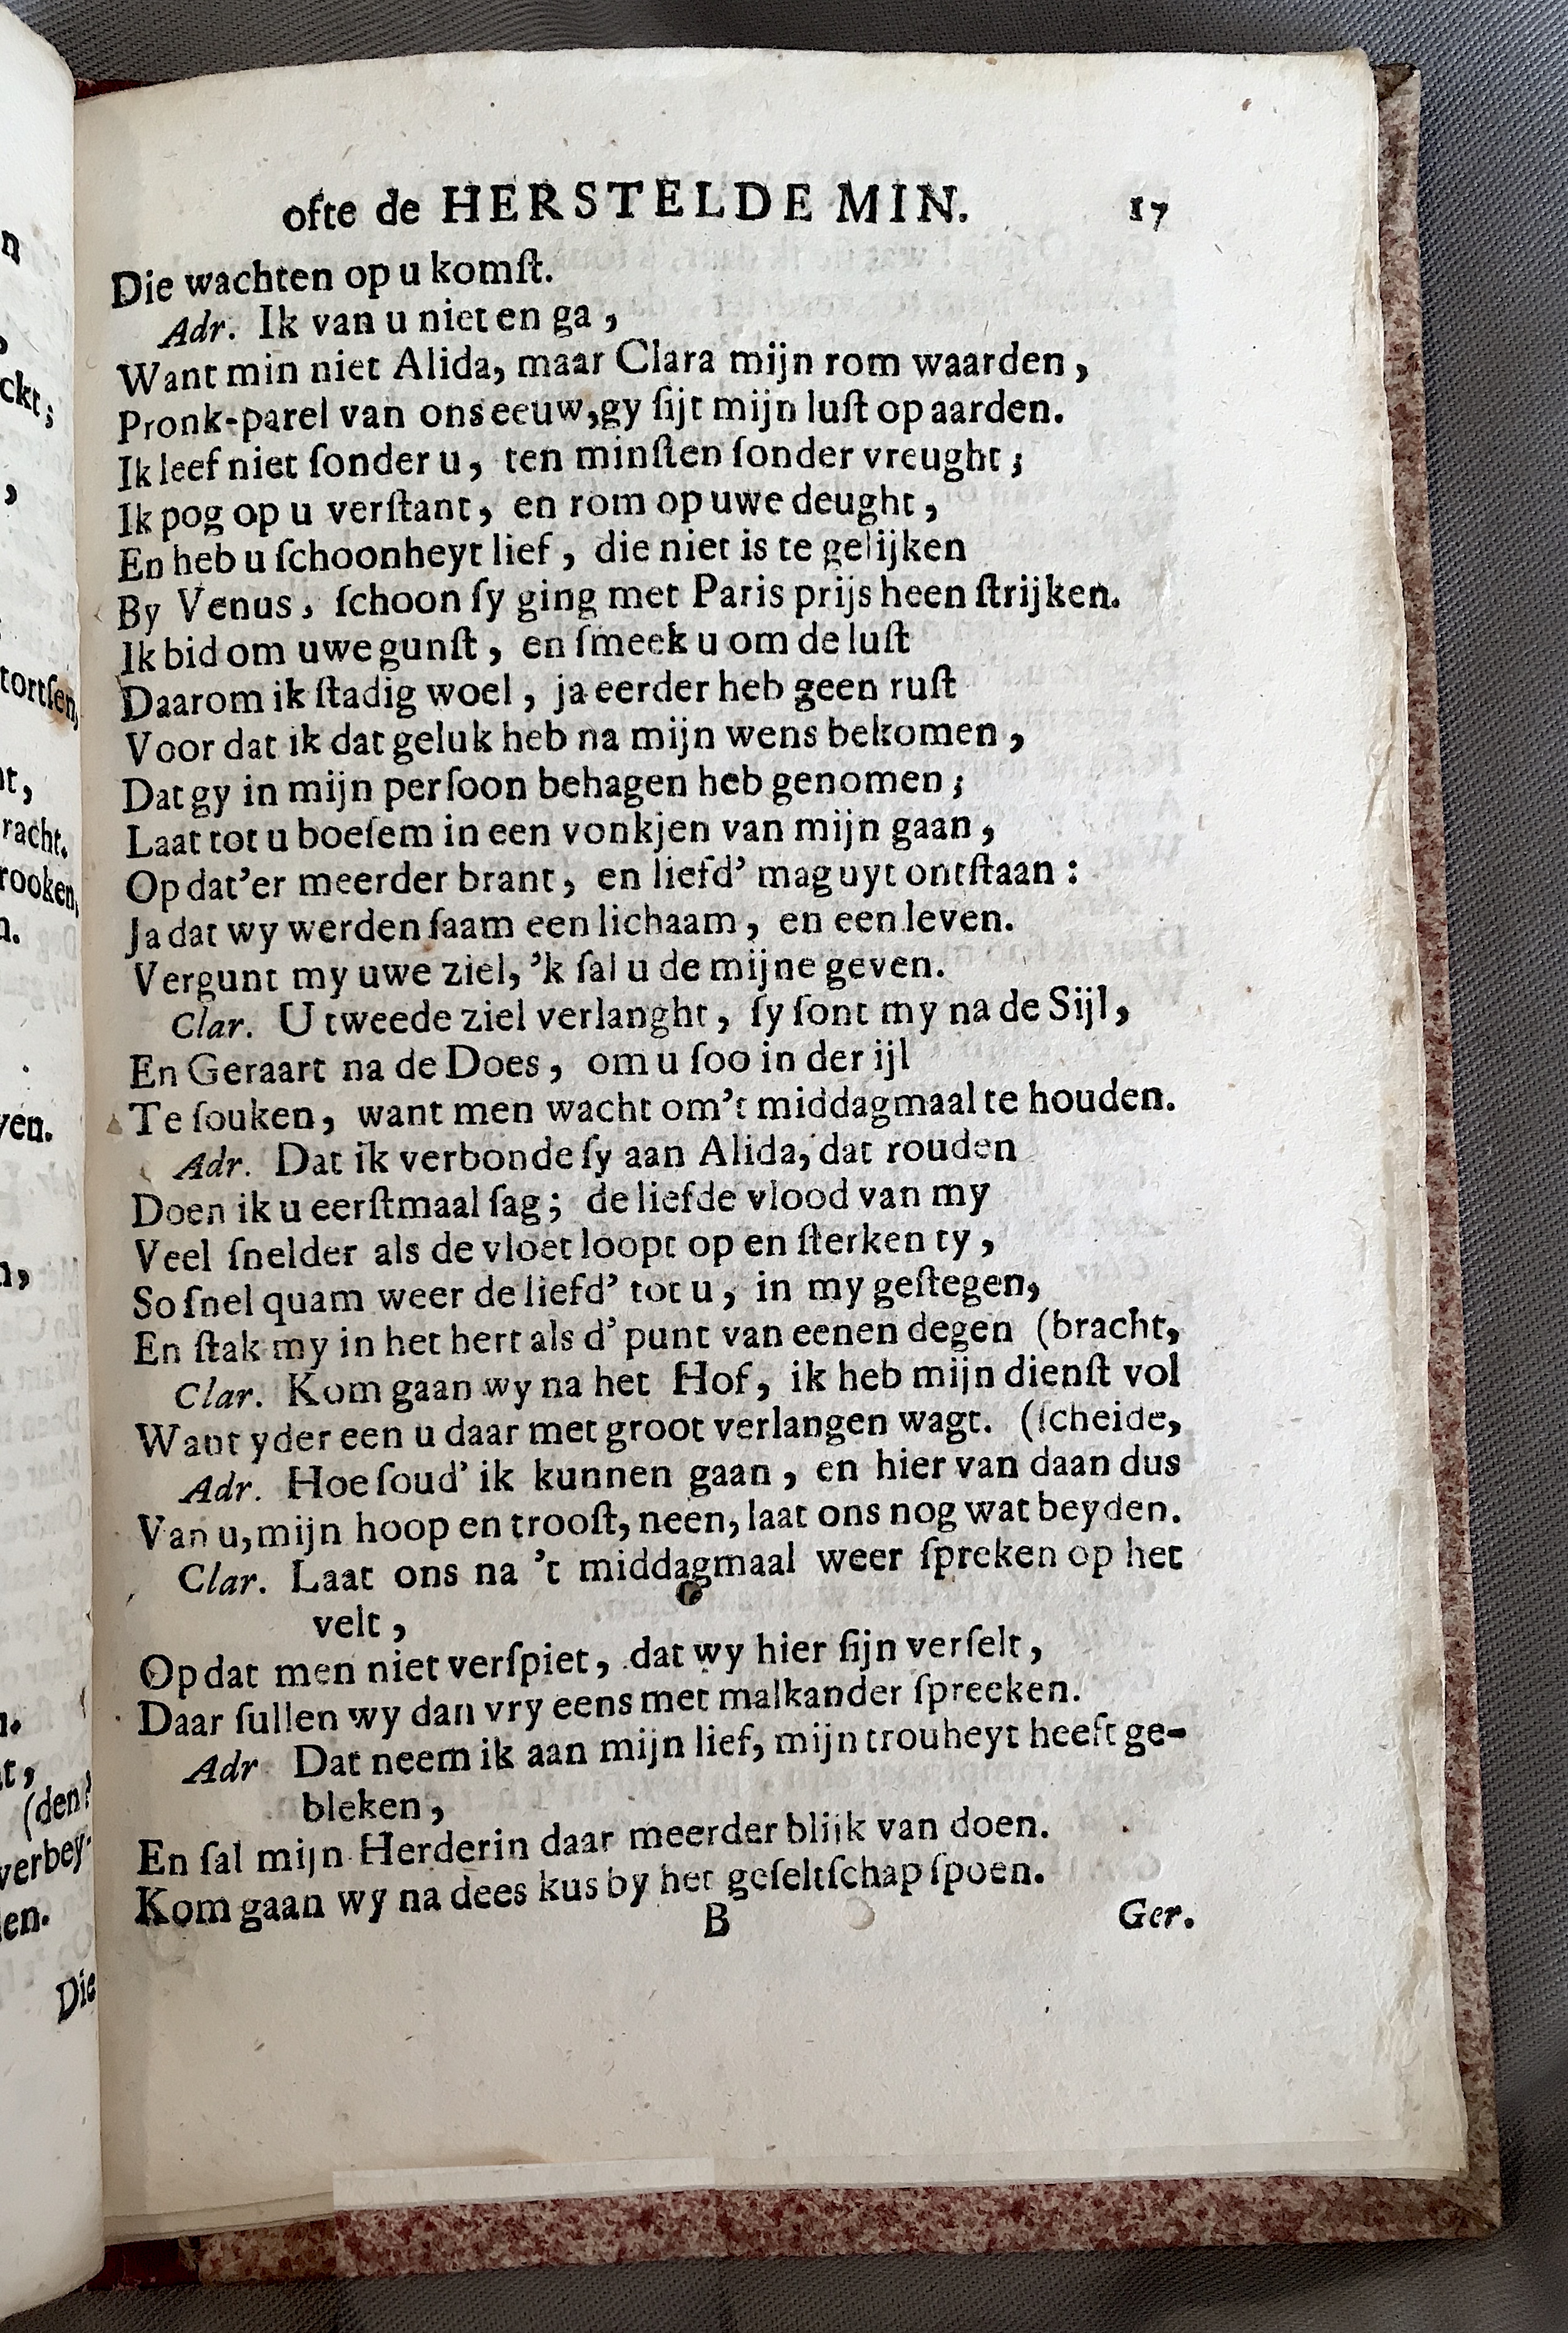 ofte de HERSTELDE MIN. 17
Die wachten op u komſt.
Adr. Ik van u niet en ga,
Want min niet Alida, maar Clara mijn rom waarden,
Pronk-parel van ons eeuw, gy ſijt mijn luſt op aarden.
Ik leef niet ſonder u, ten minſten ſonder vreught;
Ik pog op u verſtant, en rom op uwe deught,
En heb u ſchoonheyt lief, die niet is te gelijken
By Venus, ſchoon ſy ging met Paris prijs heen ſtrijken.
Ik bid om uwe gunſt, en ſmeek u om de luſt
Daarom ik ſtadig woel, ja eerder heb geen ruſt
Voor dat ik dat geluk heb na mijn wens bekomen,
Dat gy in mijn perſoon behagen heb genomen;
Laat tot u boeſem in een vonkjen van mijn gaan,
Op dat'er meerder brant, en liefd' mag uyt ontſtaan:
Ja dat wy werden ſaam een lichaam, en een leven.
Vergunt my uwe ziel, 'k ſal u de mijne geven.
Clar. U tweede ziel verlanght, ſy ſont my na de Sijl,
En Geraart na de Does, om u ſoo in der ijl
Te ſouken, want men wacht om't middagmaal te houden.
Adr. Dat ik verbonde ſy aan Alida, dat rouden
Doen ik u eerſtmaal ſag; de liefde vlood van my
Veel ſnelder als de vloet loopt op en ſterken ty,
So ſnel quam weer de liefd' tot u, in my geſtegen,
En ſtak my in het hert als d' punt van eenen degen (bracht,
Clar. Kom gaan wy na het Hof, ik heb mijn dienſt vol
Want yder een u daar met groot verlangen wagt. (ſcheide,
Adr. Hoe ſoud' ik kunnen gaan, en hier van daan dus
Van u, mijn hoop en trooſt, neen, laat ons nog wat beyden.
Clar. Laat ons na 't middagmaal weer ſpreken op het
velt,
Op dat men niet verſpiet, dat wy hier ſijn verſelt,
Daar ſullen wy dan vry eens met malkander ſpreeken.
Adr Dat neem ik aan mijn lief, mijn trouheyt heeft ge-
bleken,
En ſal mijn Herderin daar meerder blijk van doen.
Kom gaan wy na dees kus by het geſeltſchap ſpoen.
B Ger.
n
ckt;
tortſen,
racht.
rooken,
ven.
(den?
verbey-
den.
Die